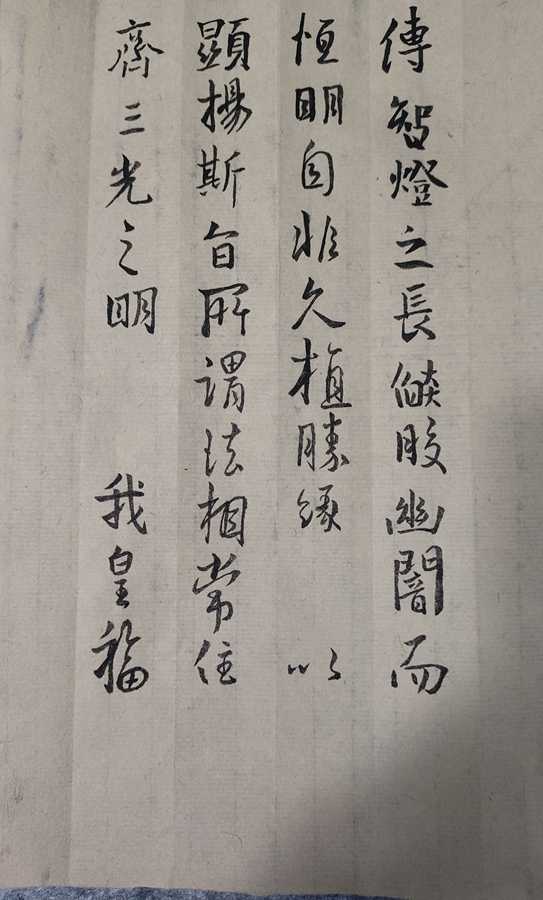 傳智燈之長燄皎幽闇而
恒明自非久植勝緣 以
顯揚斯旨所謂法相常住
齊三光之明 我皇福